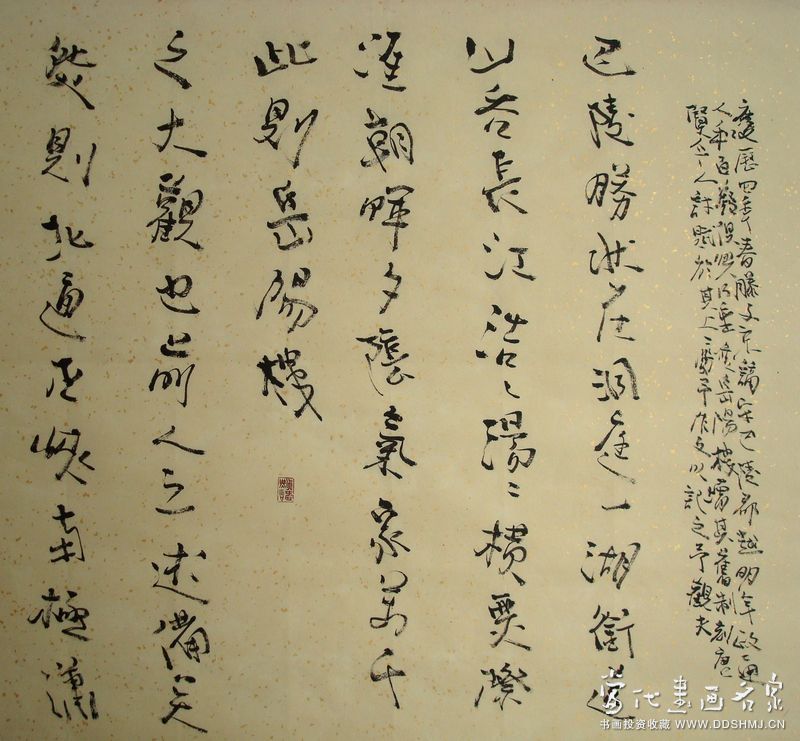 慶歷四年春滕子京謫守巴陵郡越明年政通
人和百廢俱興乃重修岳陽樓增其舊制刻唐
賢今人詩賦於其上屬予作文以記之予觀夫
巴陵勝狀在洞庭一湖銜遠
山吞長江浩〻湯〻橫無際
涯朝暉夕陰氣象萬千
此則岳陽樓
之大觀也前人之述備矣
然則北通巫峽南極瀟
當代書画名家
书画投资收藏 WWW.DDSHMJ.CN